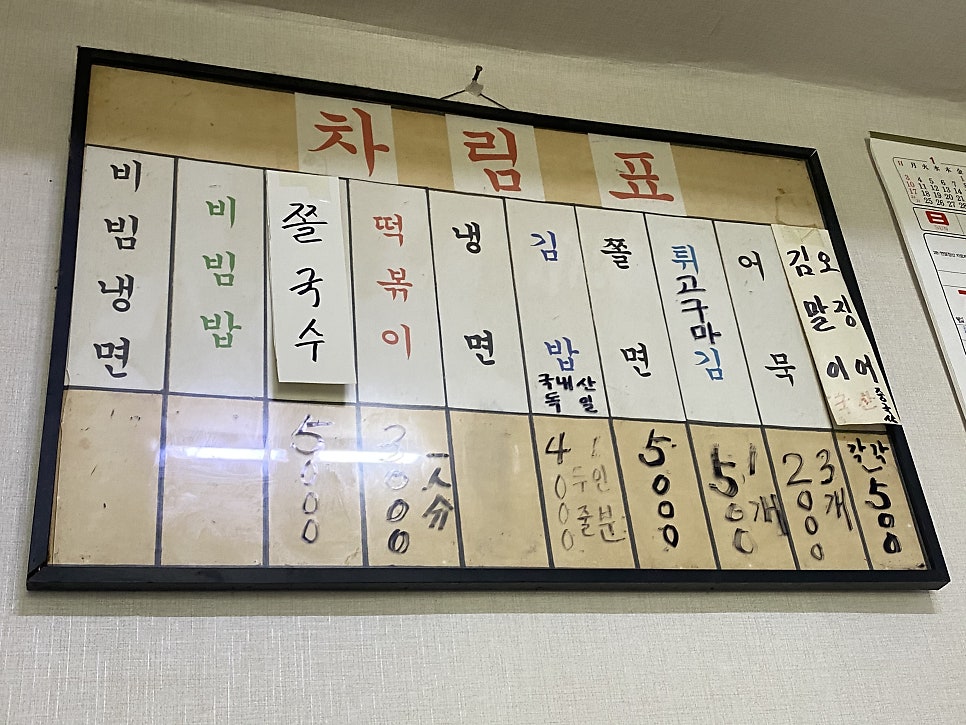 차림표
비빔냉면
비빔밥
쫄국수
5000
떡볶이
3000
냉면
김밥
국내산
독일
4000
쫄면
5000
튀고구마김
500
1개
어묵
2000
3개
김말이
오징어
중국산
각각
500